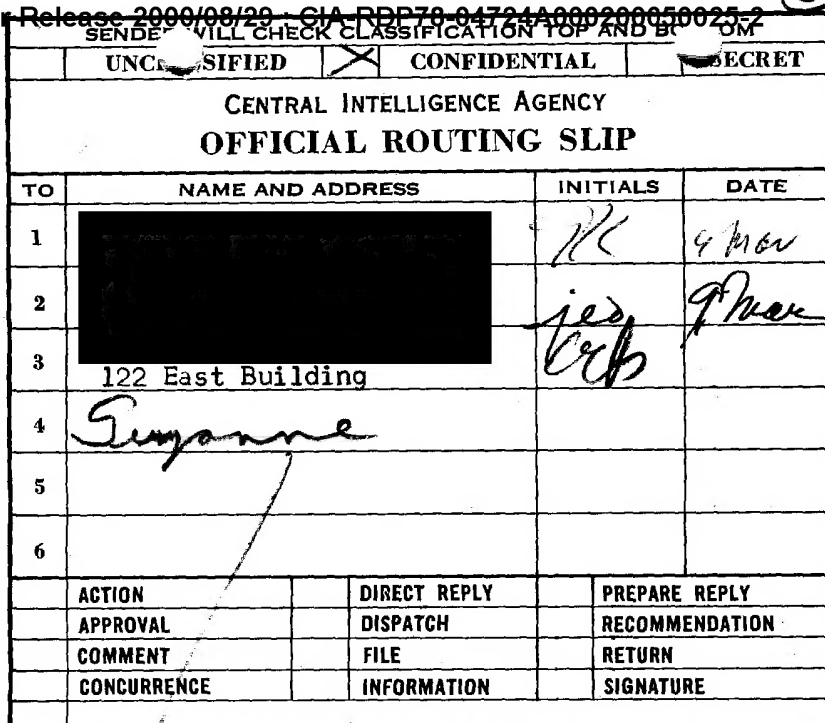 Release 2000/08/29 : CIA-RDP78-04724A000200050025-2
SENDER WILL CHECK CLASSIFICATION TOP AND BOTTOM
UNCLASSIFIED X CONFIDENTIAL SECRET
CENTRAL INTELLIGENCE AGENCY
OFFICIAL ROUTING SLIP
TO NAME AND ADDRESS INITIALS DATE
1
2 9 Mar
3
122 East Building
4 Suzanne
5
6
ACTION DIRECT REPLY PREPARE REPLY
APPROVAL DISPATCH RECOMMENDATION
COMMENT FILE RETURN
CONCURRENCE INFORMATION SIGNATURE